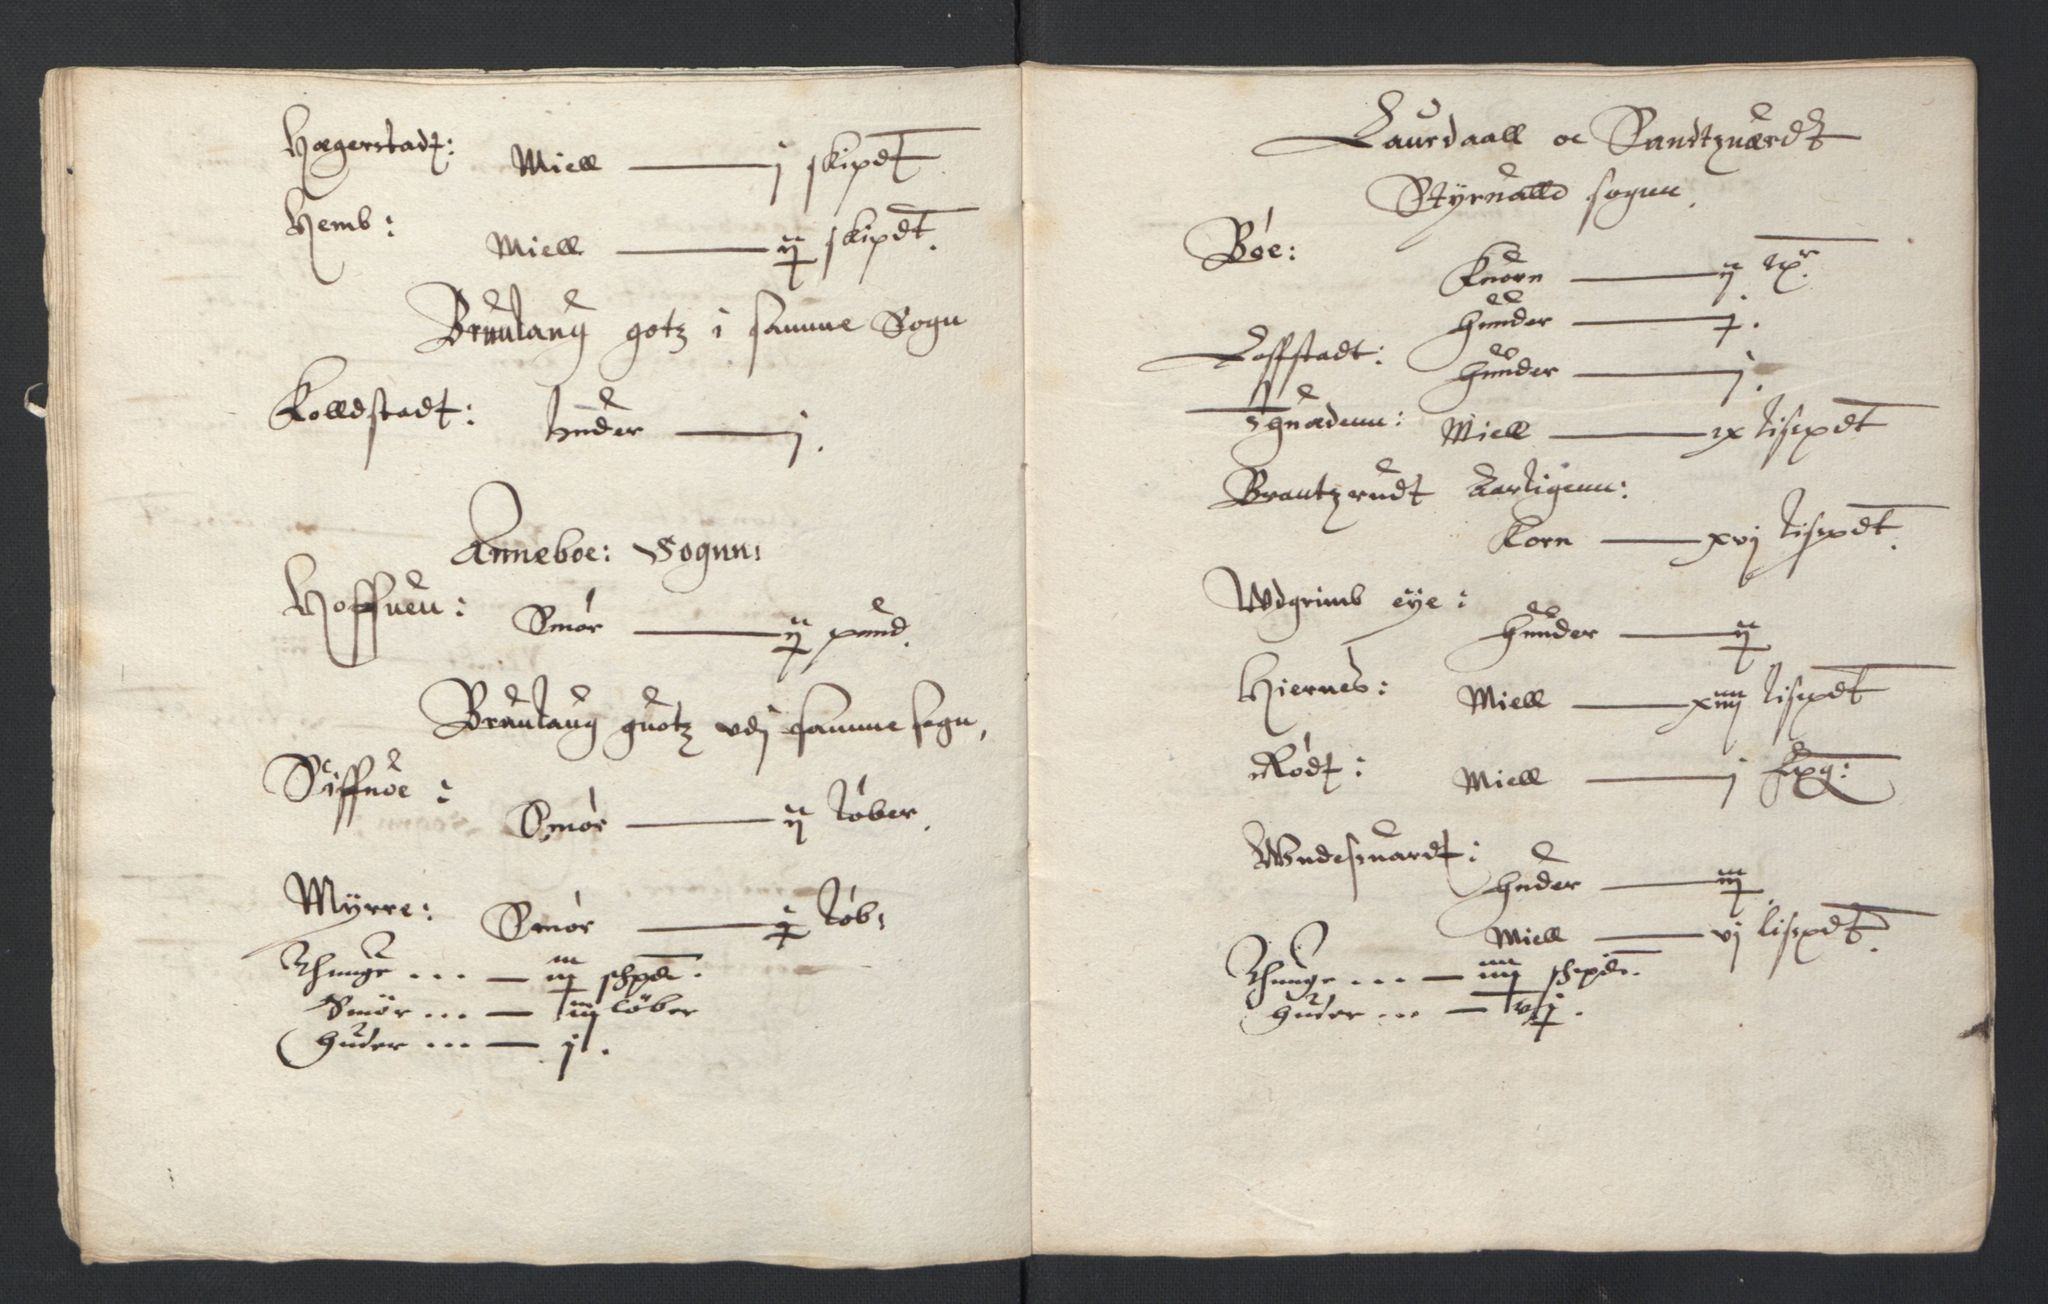 Hægerstadt:
Miell — j skipdt
Hemb:
Miell — ij skipdt.
Bruulaug gotz i samme Sogn
Kolldstadt: huder — j.
Anneboe: Sognn:
Hoffuen:
Smór — ij pund.
Bruulaug guotz vdj samme sogn,
Siffuöe:
Smór — ij lóber.
Myrre: Smór — j lób:
Thunge ... — iij schpd.
Smör ... — iij löber
Huder ... — j.
Laurdaall oc Sandtzuerdt
Styrualld sognn.
Bóe:
Kuorn — ij
Hunder — j.
Loffstadt: Hunder — j.
Miell — ix lispdt
Brantzrudt Aarligenn:
Korn — xvj lispdt.
Wdgrimb eye:
Hunder — ij
Hiernes: Miell — xiiij lispdt
Ródt: Miell — j
Wndesuardt:
Huder — iij.
Miell — vj lispdt.
Thunge ... — iiij schpd.
Huder ... — vij.